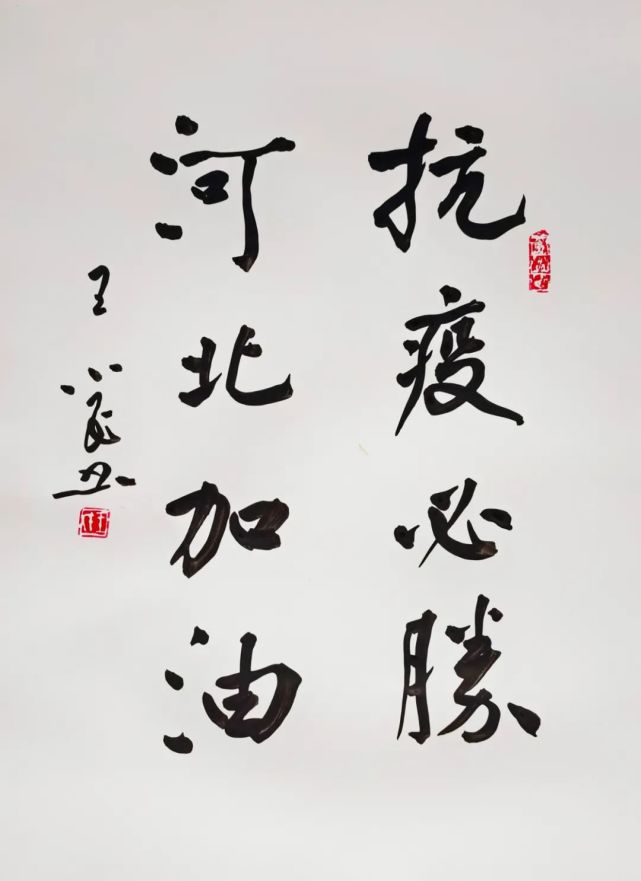 抗疫必勝
河北加油
王